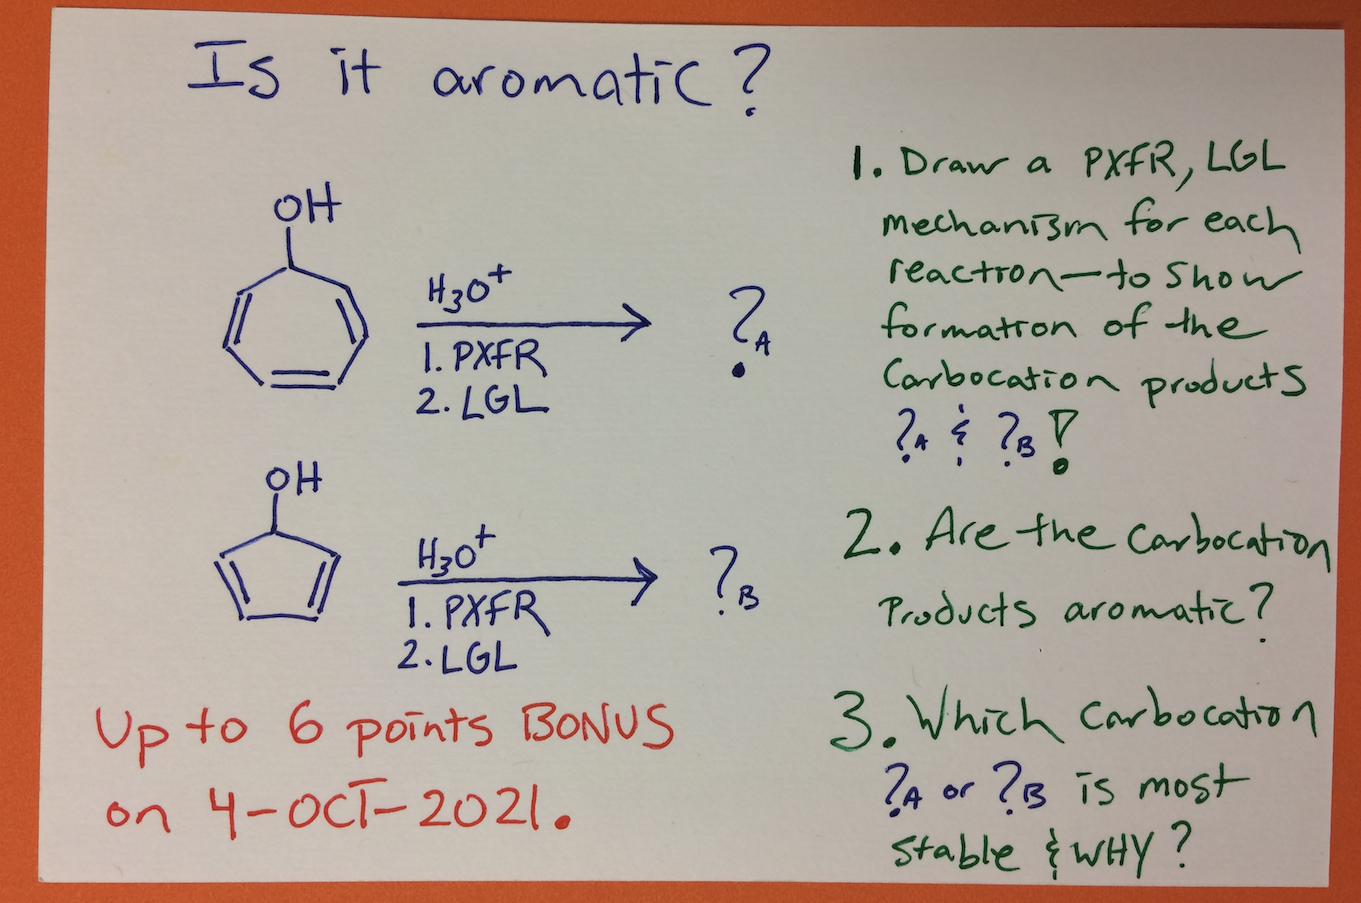 Is it aromatic?
OH
H₃O⁺
1. PXFR
2. LGL
?A
OH
H₃O⁺
1. PXFR
2. LGL
?B
Up to 6 points BONUS
on 4-OCT-2021.
1. Draw a PXFR, LGL
mechanism for each
reaction—to show
formation of the
Carbocation products
?A & ?B!
2. Are the Carbocation
Products aromatic?
3. Which Carbocation
?A or ?B is most
stable & WHY?